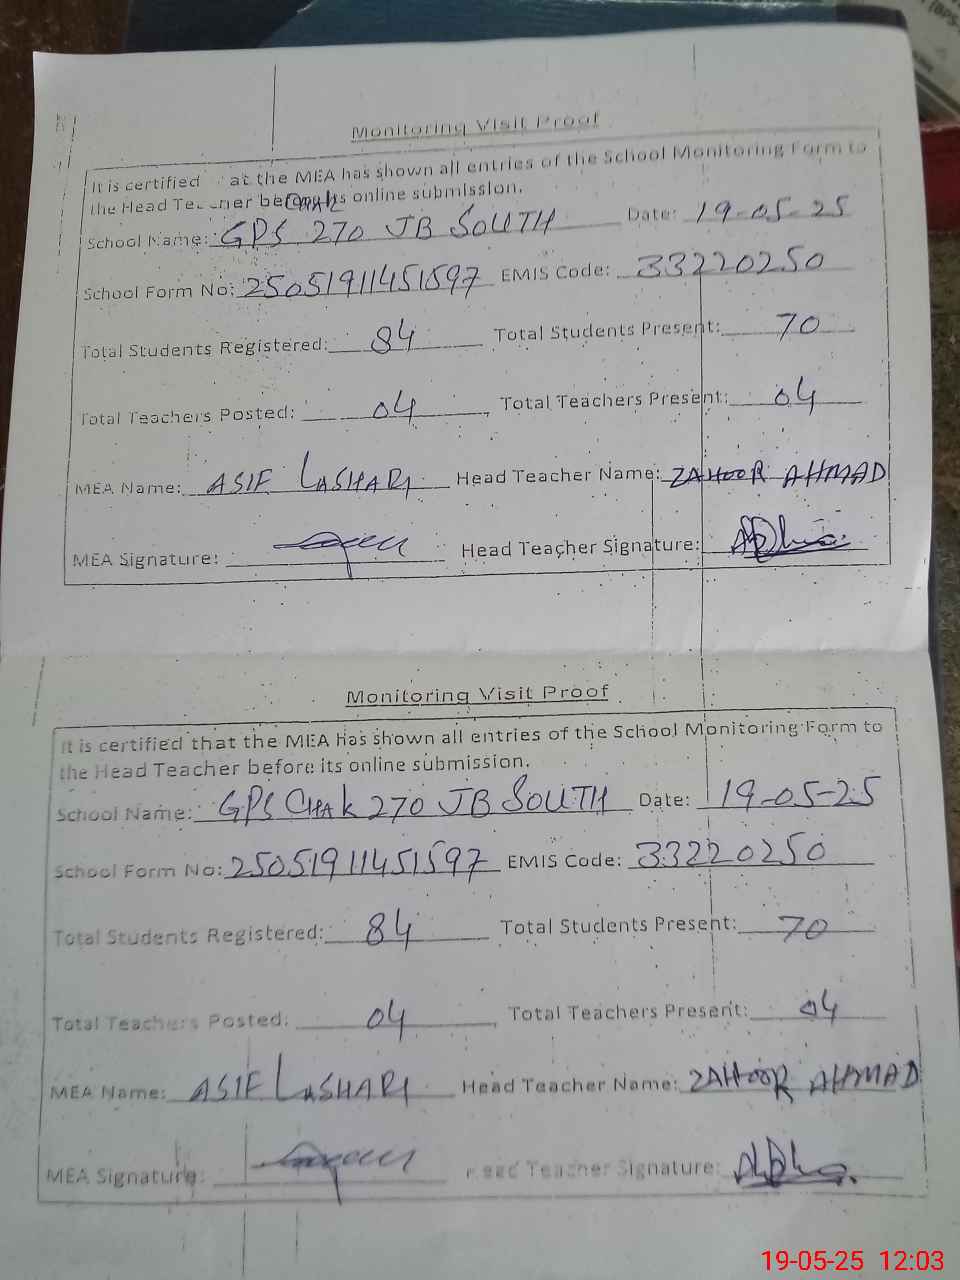 Monitoring Visit Proof
It is certified at the MEA has shown all entries of the School Monitoring Form to
the Head Teacher before its online submission.
CHAK
School Name: GPS 270 JB SOUTH Date: 19-05-25
School Form No: 25051911451597 EMIS Code: 33220250
Total Students Registered: 84 Total Students Present: 70
Total Teachers Posted: 04, Total Teachers Present: 04
MEA Name: ASIF LASHARI Head Teacher Name: ZAHOOR AHMAD
MEA Signature: Head Teacher Signature:
Monitoring Visit Proof
It is certified that the MEA has shown all entries of the School Monitoring Form to
the Head Teacher before its online submission.
School Name: GPS CHAK 270 JB SOUTH Date: 19-05-25
School Form No: 25051911451597 EMIS Code: 33220250
Total Students Registered: 84 Total Students Present: 70
Total Teachers Posted: 04, Total Teachers Present: 04
MEA Name: ASIF LASHARI Head Teacher Name: ZAHOOR AHMAD
MEA Signature: Head Teacher Signature:
19-05-25 12:03